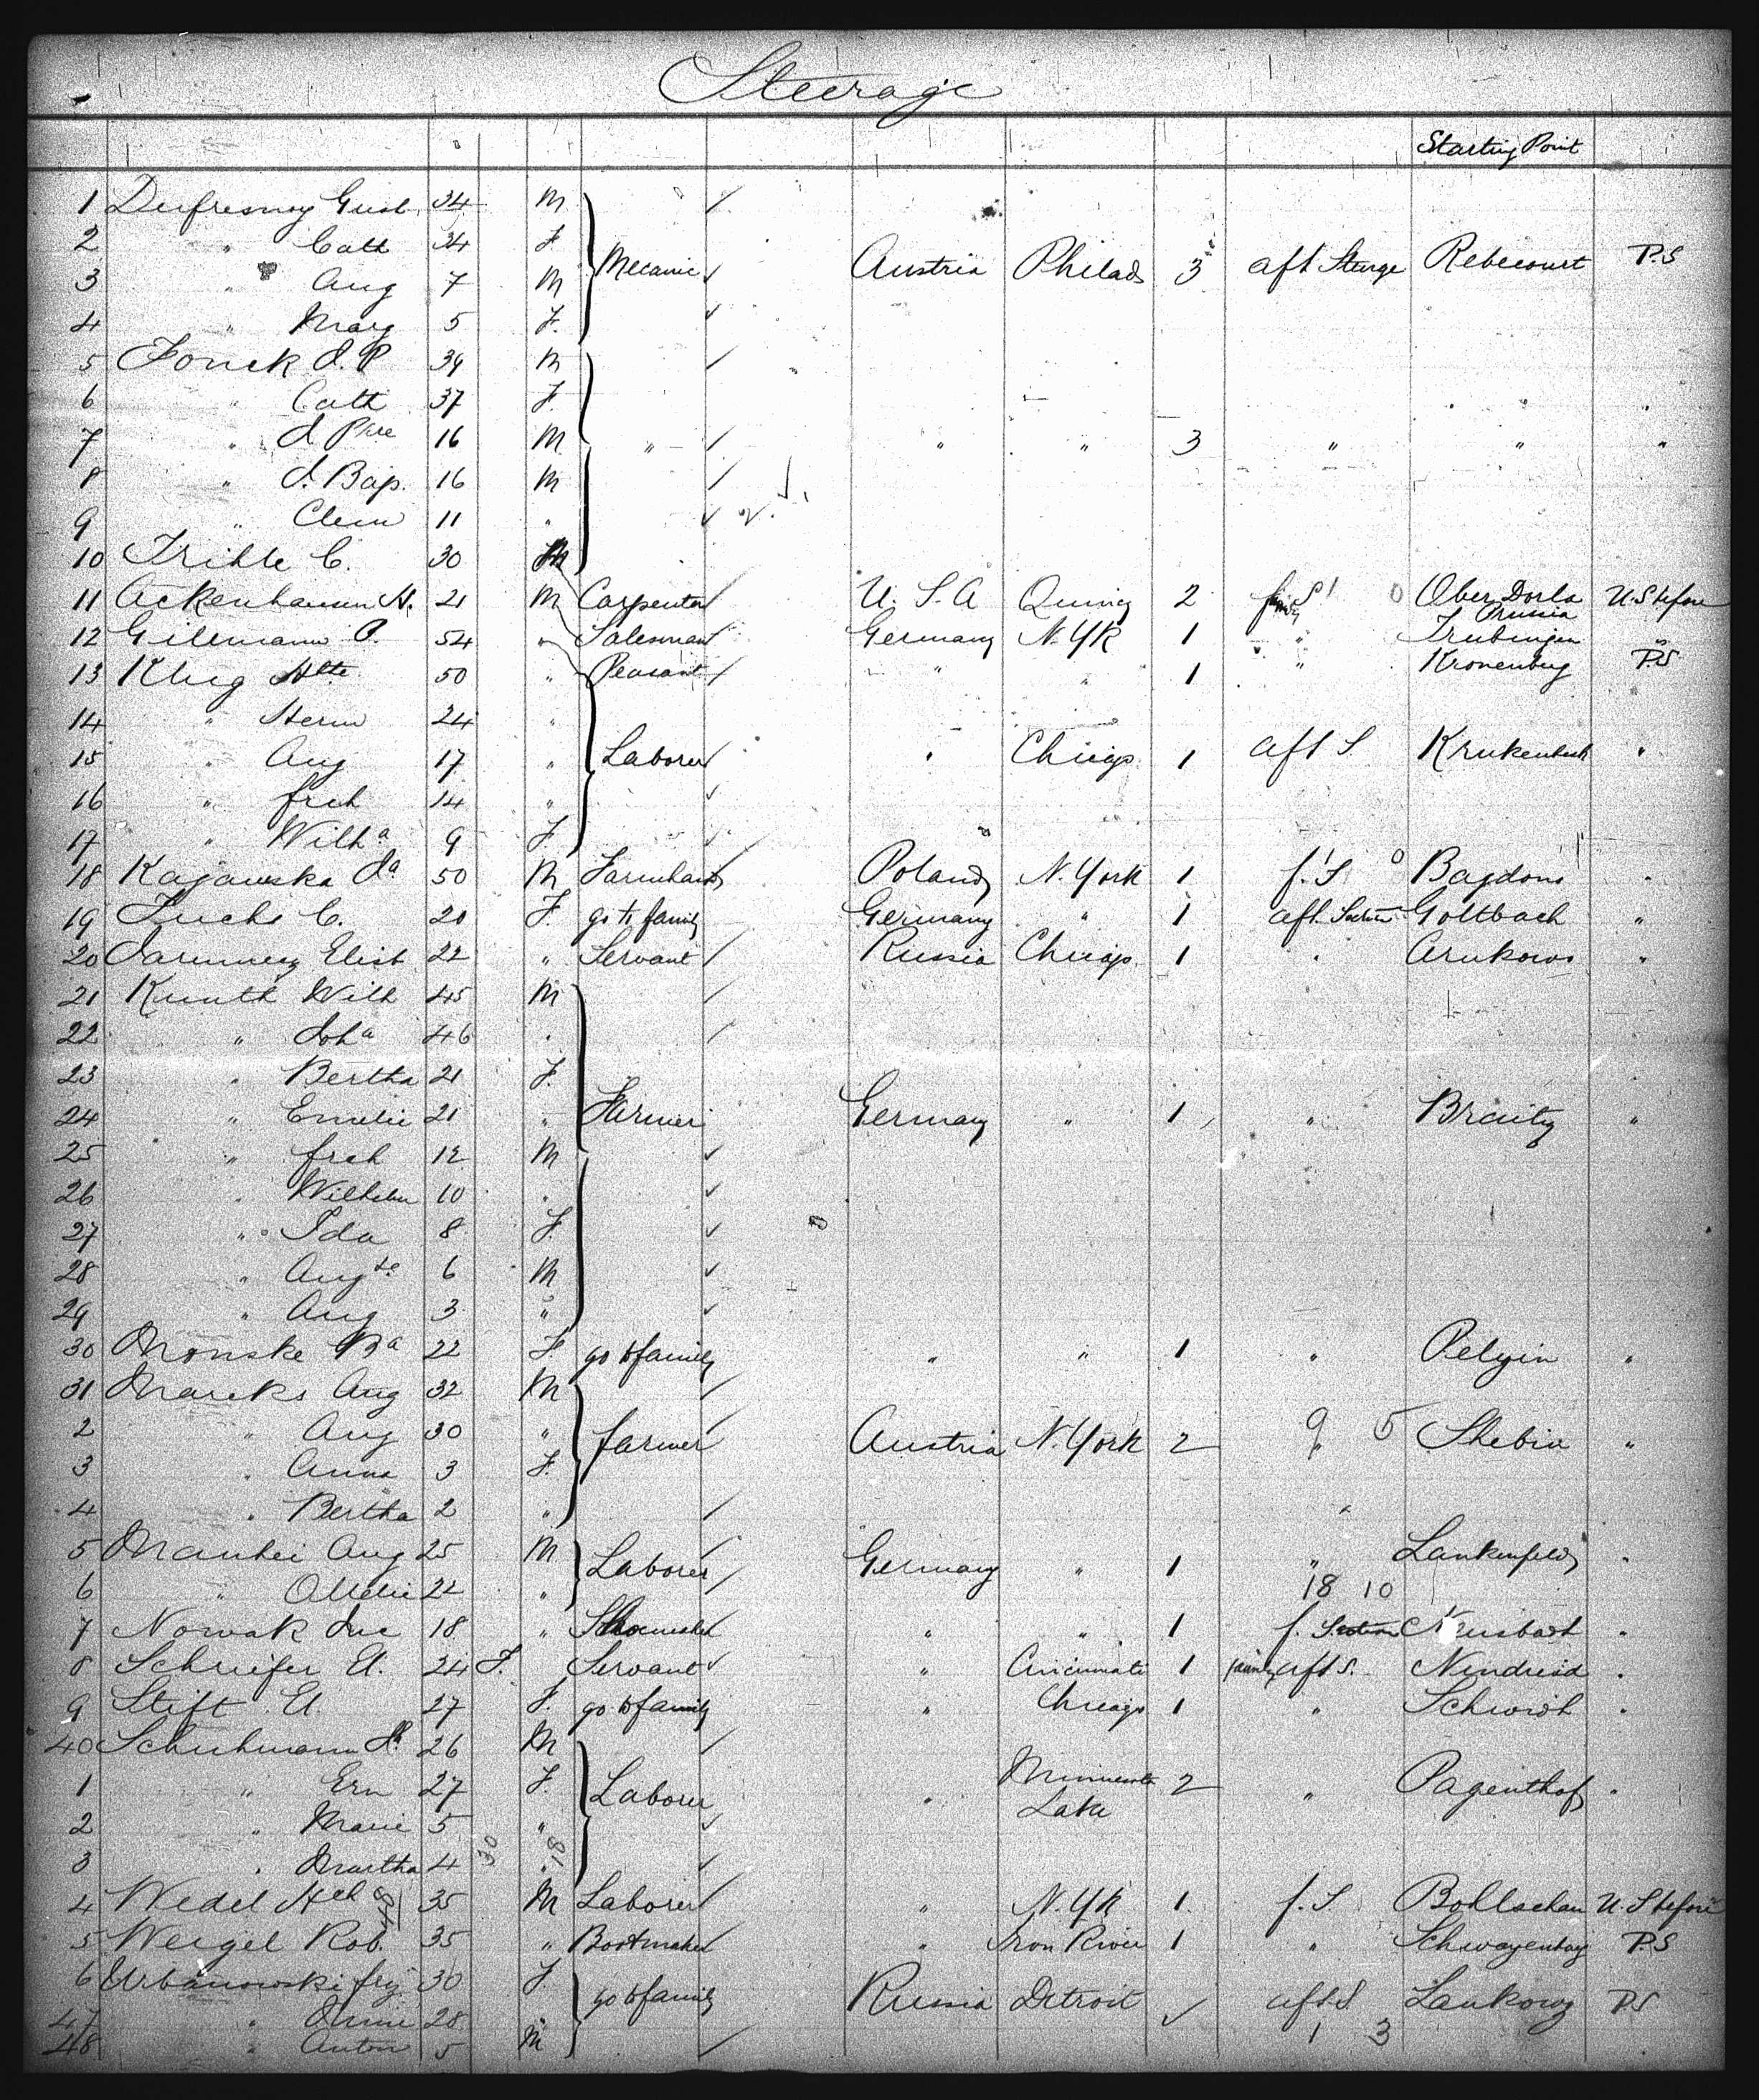 Steerage
Starting Point
1 Dufresnoy Gust 34 M
2 " Cath 34 F.
3 " Aug 7 M Mecanic Austria Philad 3 aft Sterge Rebecourt P.S
4 " Marg 5 F.
5 Fonck J. P 39 M
6 " Cath 37 F.
7 " J Pre 16 M " " " 3 " " "
8 " J. Bap. 16 M
9 " Clem 11 "
10 Trible C. 30
11 Ackenhausen H. 21 M Carpenter U. S. A Quincy 2 Ober Dorla Prussia U.S before
12 Gillmann P. 54 " Salesman Germany N. YK 1 " Trubingen "
13 Klug 50 " Peasant " " 1 " Kronenburg P.S
14 " Herm 24 "
15 " Aug 17 " Laborer " Chicago 1 aft S "
16 " frch 14 "
17 " Wilha 9 F.
18 Kajawska Ja 50 M Farmhand Poland N. York 1 f. S Bagdons "
19 Fuchs C. 20 F. go to family Germany " 1 aft. Section Gottbach "
20 Elisb 22 " Servant Russia Chicago 1 " Arukows "
21 Kunth Wilh 45 M
22 " Joha 46 "
23 " Bertha 21 F.
24 " Emelie 21 " Farmer Germany " 1 " Braity "
25 " frch 12 M
26 " Wilhelm 10 "
27 " Ida 8 F.
28 " Augte 6 M
29 " Aug 3 "
30 Monske Ba 22 F. go to family " " 1 " Pelyin "
31 Mareks Aug 32 M
2 " Aug 30 " farmer Austria N. York 2 9 5 Skebia "
3 " Anna 3 F.
4 " Bertha 2 "
5 Manhei Aug 25 M Laborer Germany " 1 " Lankenfeld "
6 " Ottelie 22 " 18 10
7 Nowak 18 " Shoemaker " " 1 f. Section "
8 Schriefer E. 24 F. Servant " Cincinnati 1 family aft S. "
9 Stift E. 27 F. go to family " Chicago 1 " "
40 Schuhmann 26 M
1 " Ern 27 F. Laborer " Minnesota Lake 2 " Pagenthof "
2 " Marie 5 "
3 " Martha 4 " 30 18
4 Wedel Hch 48 35 M Laborer " N. YK 1 f. S. Bohlschau U. S before
5 Weigel Rob. 35 " Bootmaker " Iron River 1 " P.S
6 Urbanowski 30 F. go to family Russia Detroit aft S Lankowy P.S
47 " 28 "
48 " Anton 5 M 1 3